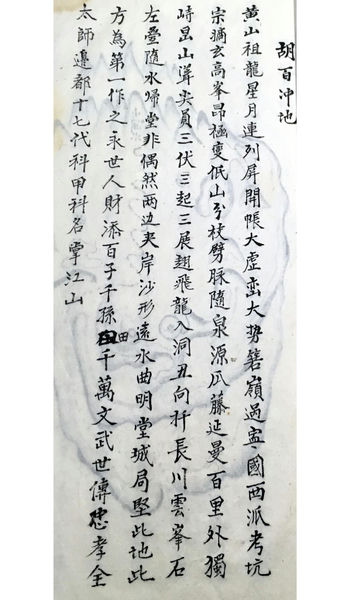 胡百沖地
黄山祖龍星月連列屏開帳大虛峦大势箬嶺過寍國西派考坑
宗猶玄高峯昂極变低山兮枝劈脉隨泉源瓜藤延曼百里外獨
峙昆山洋尖員三伏三起三展翅飛龍入洞丑向扦長川雲峯石
左叠隨水歸堂非偶然两边夹岸沙形遠水曲明堂城局堅此地此
方為第一作之永世人財添百子千孫田千萬文武世傳忠孝全
太師邉都十七代科甲科名掌江山